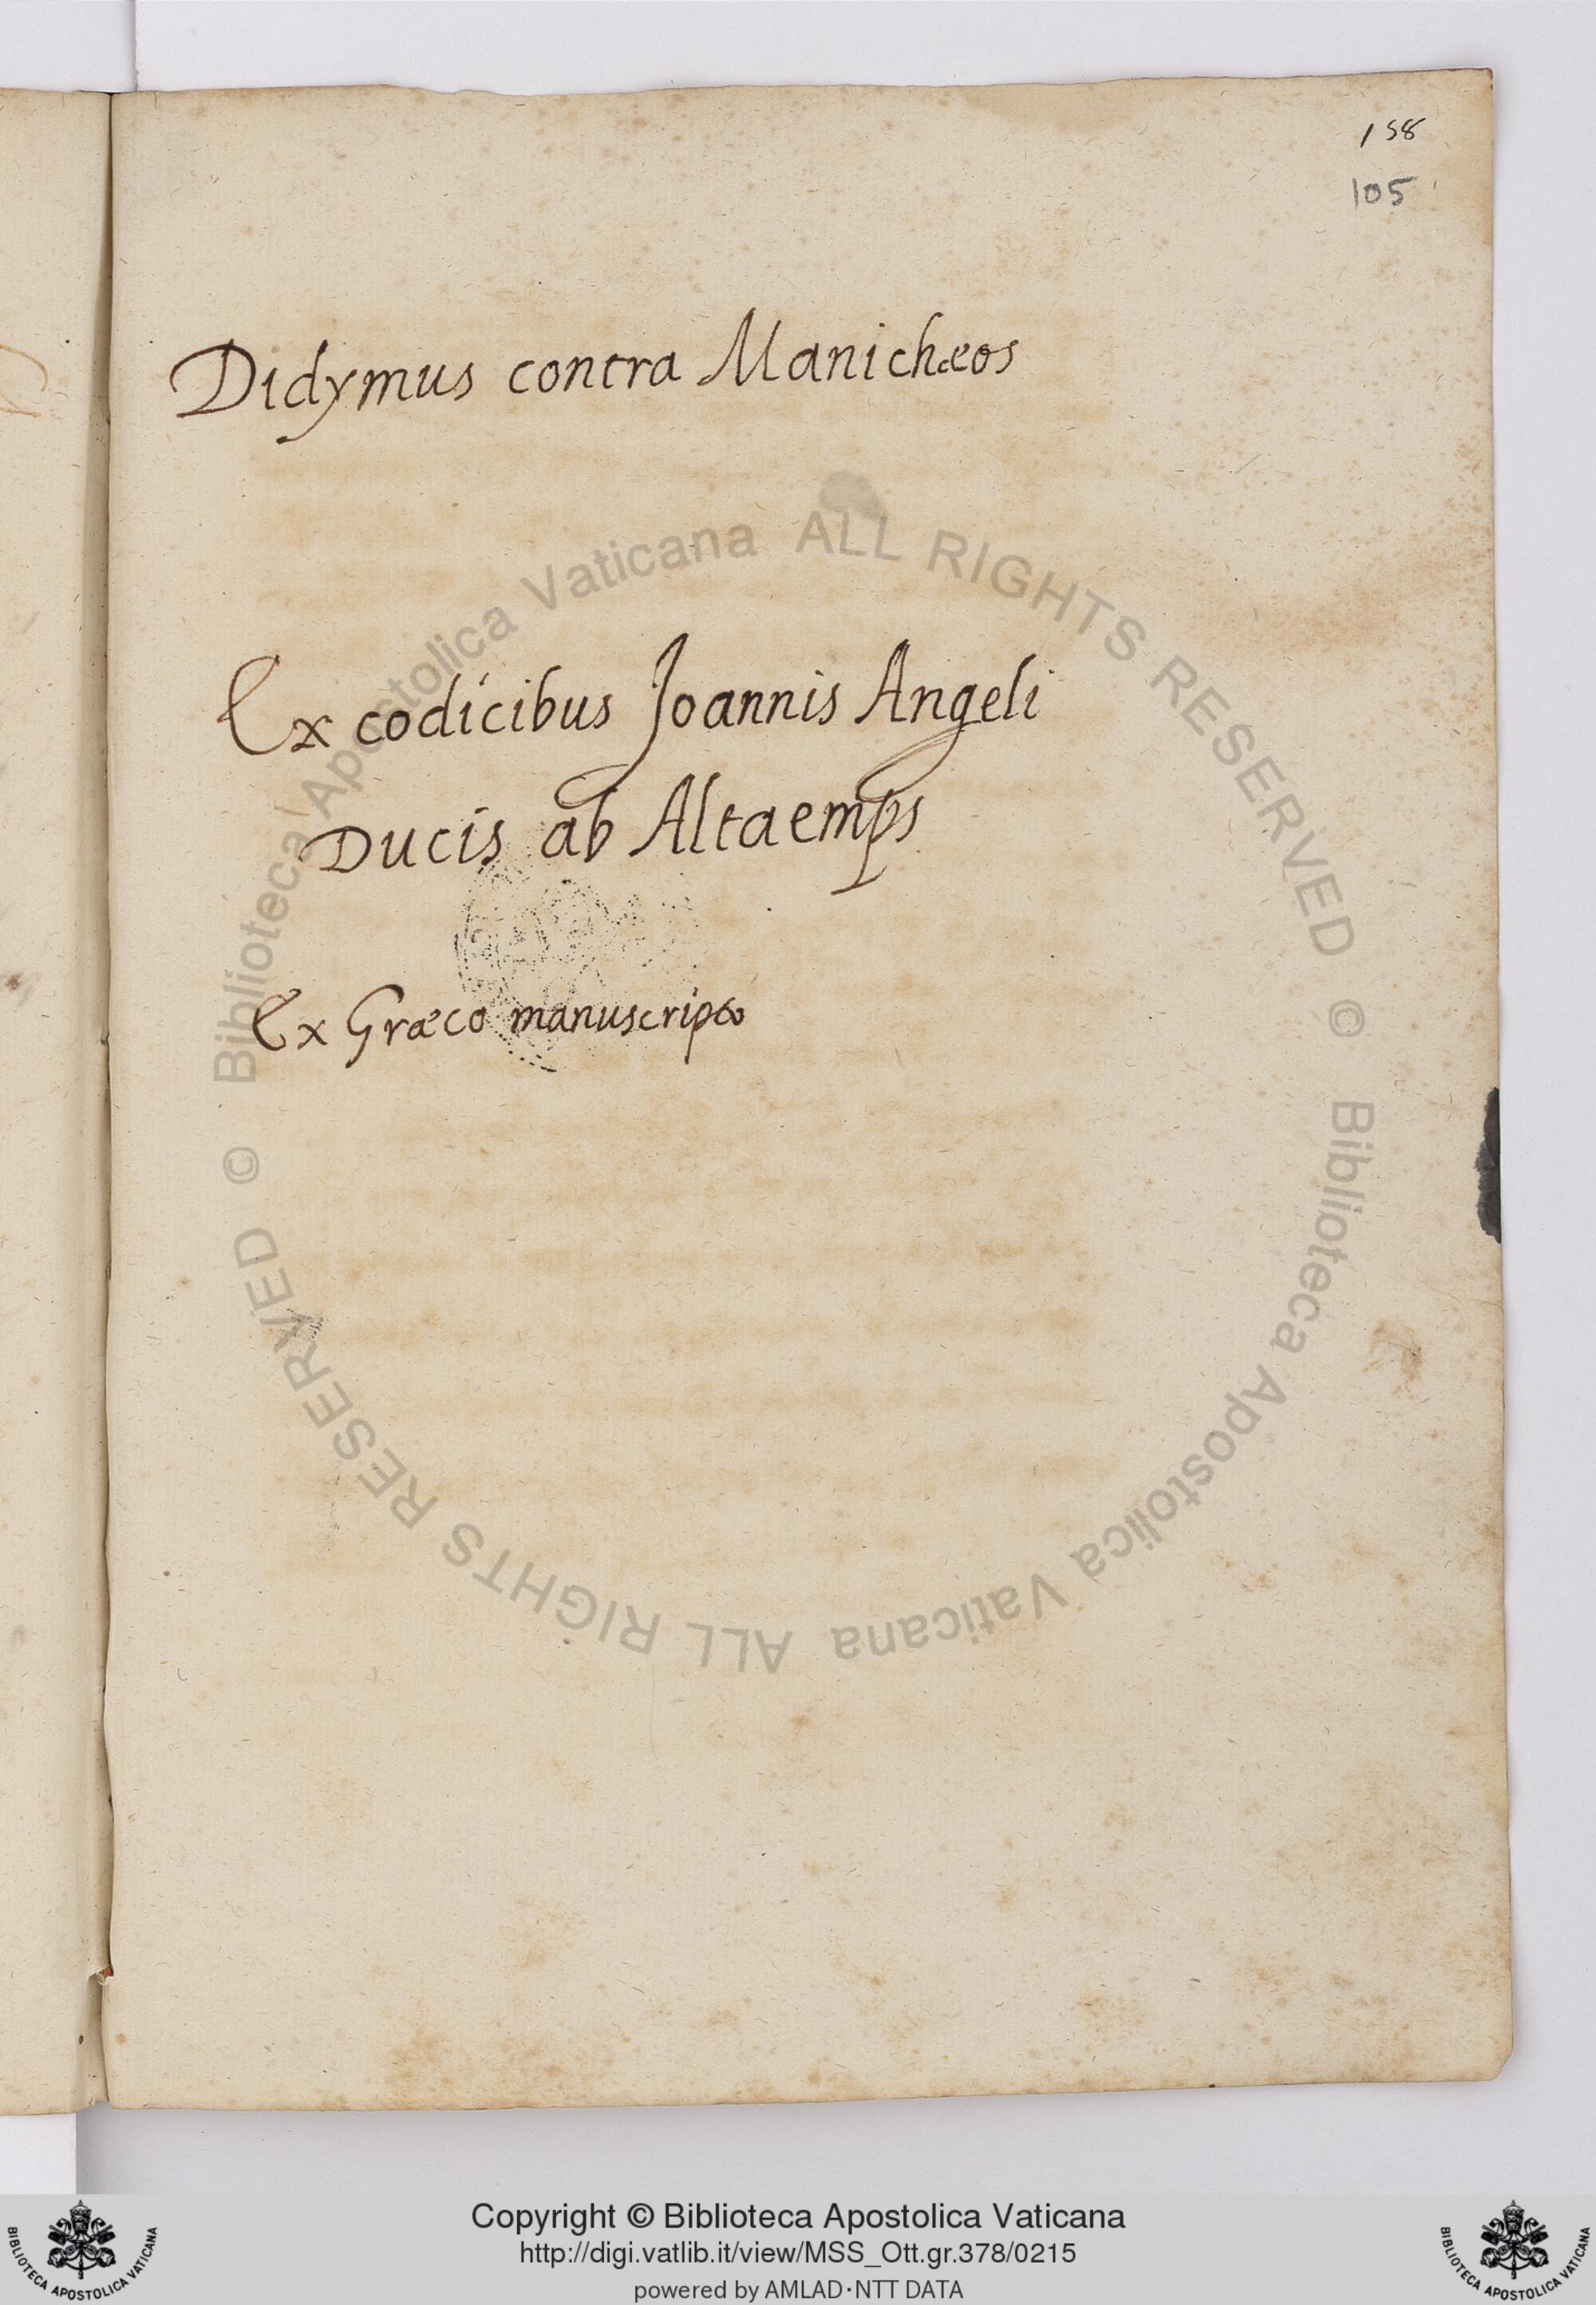 158
105
Didymus contra Manichæos
Ex codicibus Joannis Angeli
Ducis ab Altaemps
Ex Græco manuscripto
© Biblioteca Apostolica Vaticana ALL RIGHTS RESERVED
© Biblioteca Apostolica Vaticana ALL RIGHTS RESERVED
Copyright © Biblioteca Apostolica Vaticana
http://digi.vatlib.it/view/MSS_Ott.gr.378/0215
powered by AMLAD·NTT DATA
BIBLIOTECA APOSTOLICA VATICANA
BIBLIOTECA APOSTOLICA VATICANA